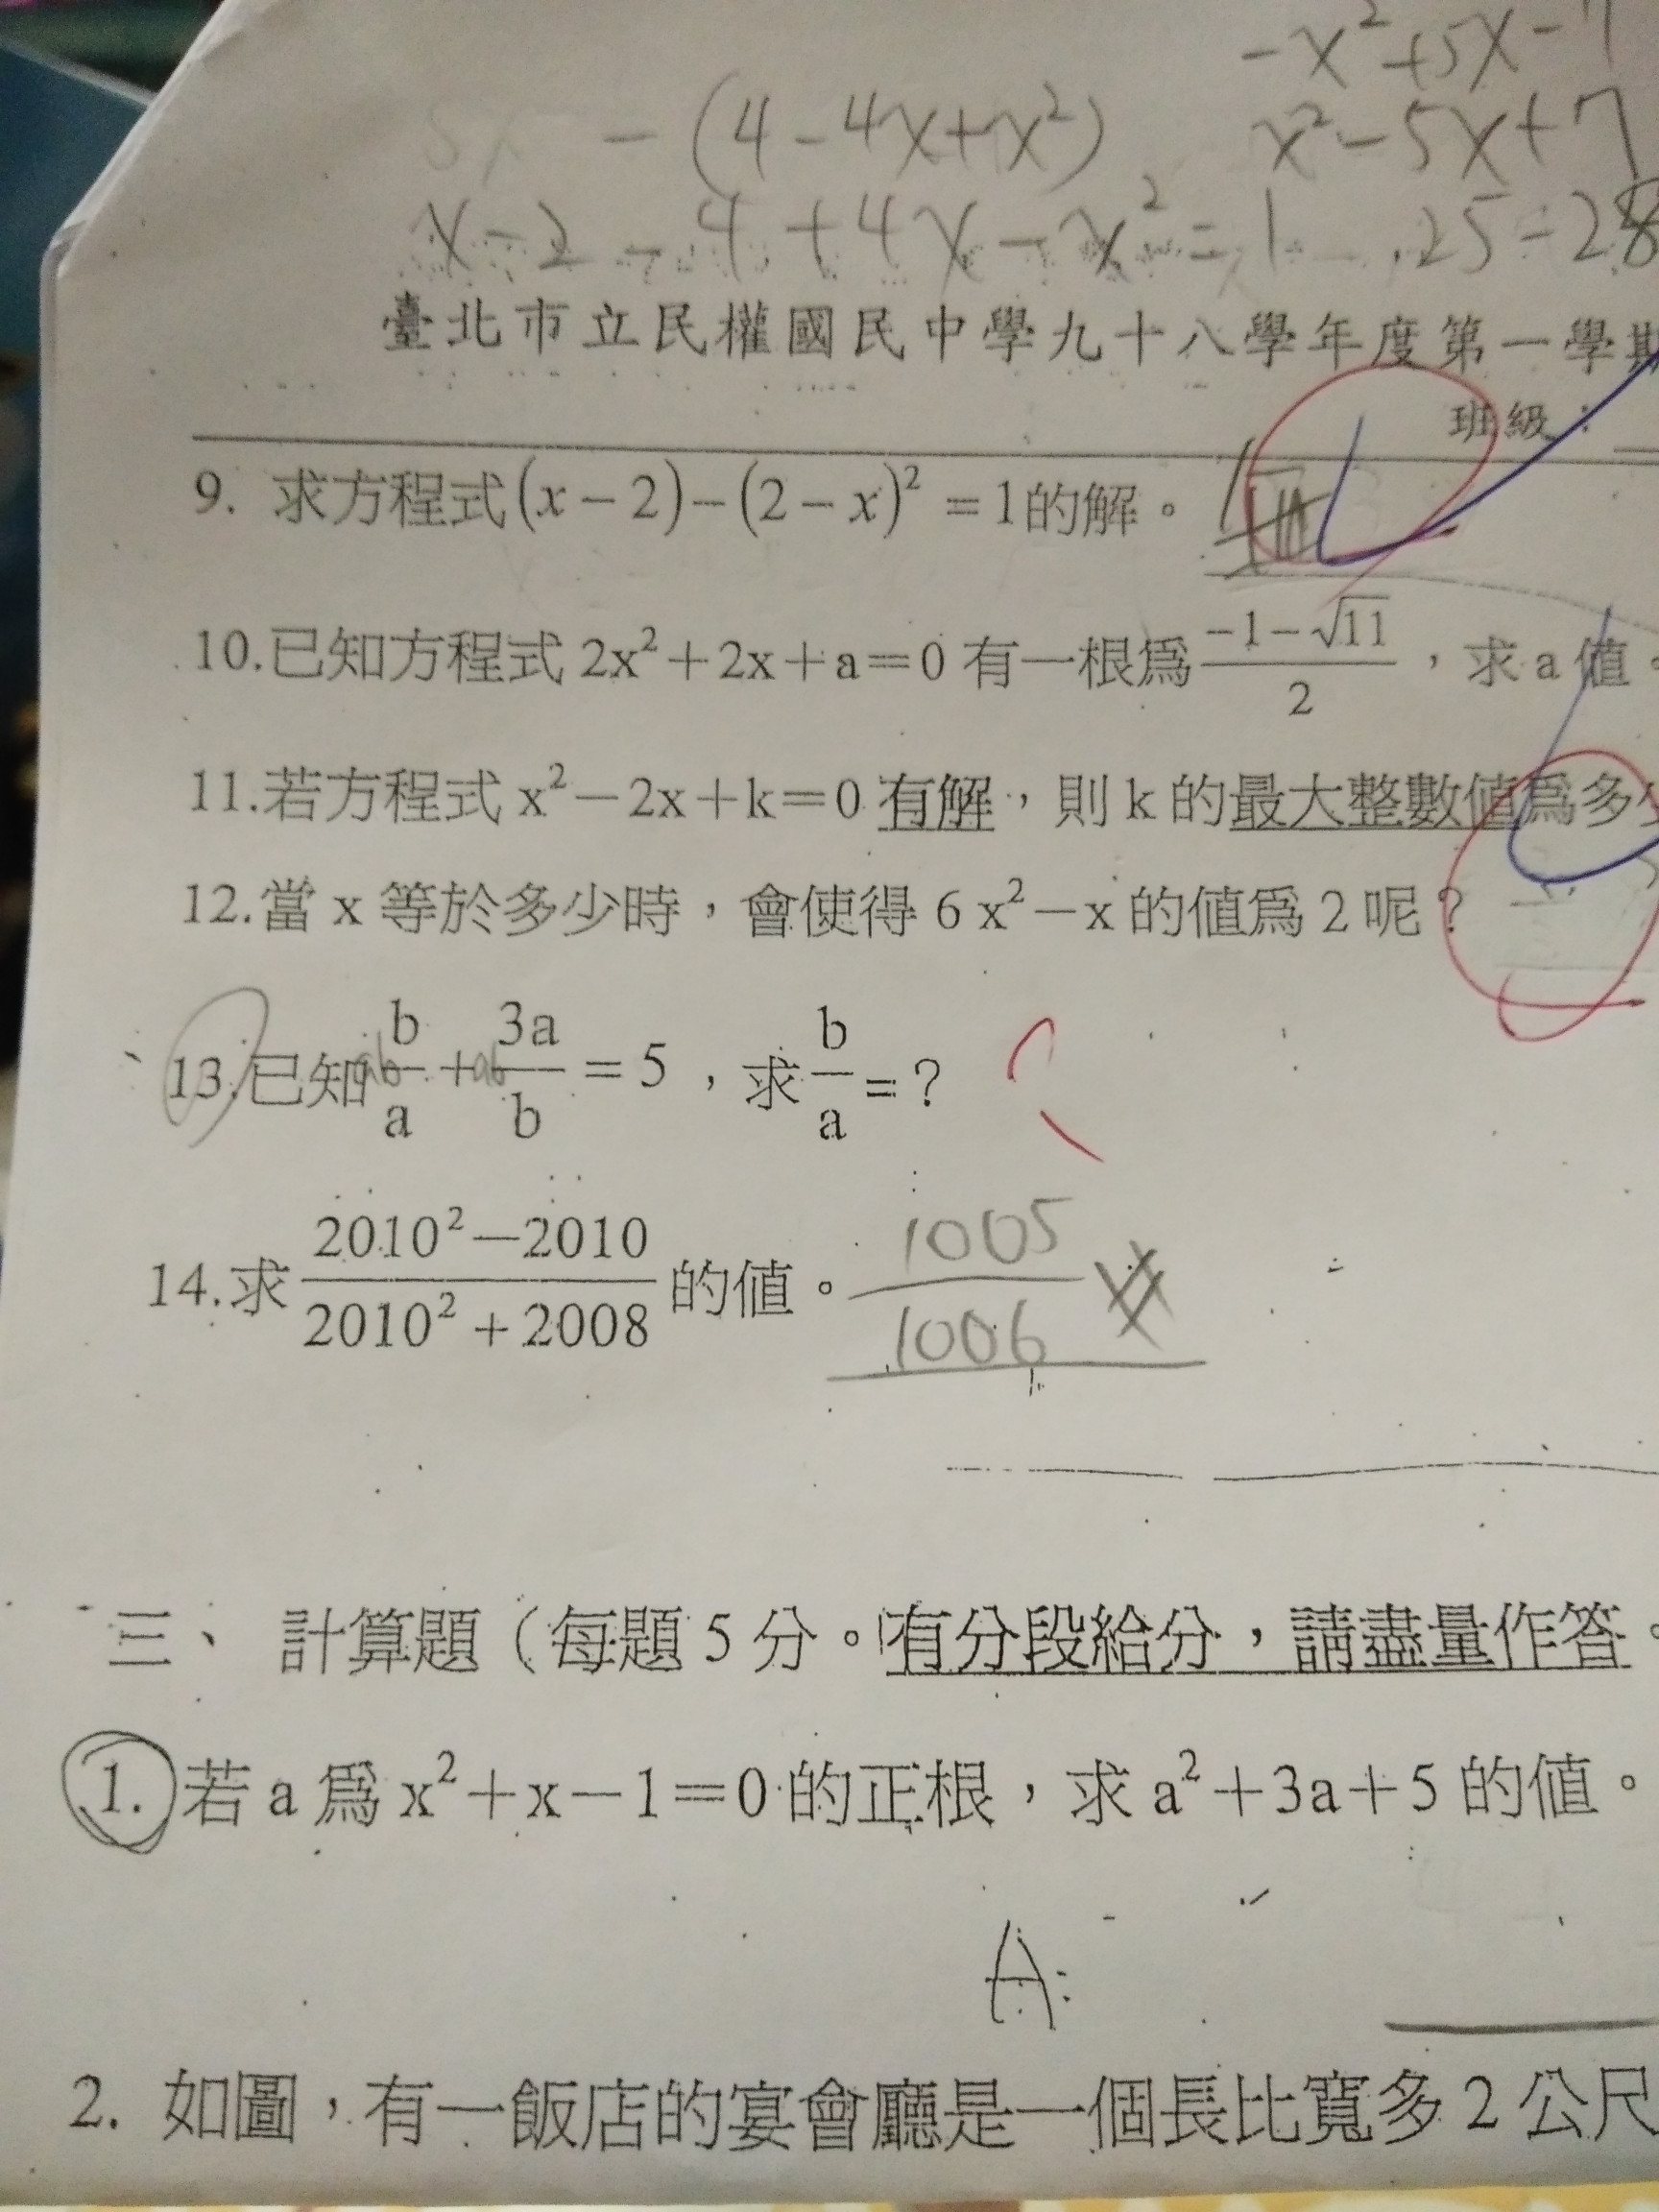 -x²+5x-7
-(4-4x+x²) x²-5x+7
x-2-4+4x-x²=1 25-28
臺北市立民權國民中學九十八學年度第一學期
班級：
9. 求方程式(x-2)-(2-x)²=1的解。
10.已知方程式 2x²+2x+a=0 有一根為 (-1-√11)/2，求 a 值。
11.若方程式 x²-2x+k=0 有解，則 k 的最大整數值為多少
12.當 x 等於多少時，會使得 6x²-x 的值為 2 呢？
13.已知 b/a + 3a/b = 5，求 b/a =？
14.求 (2010²-2010)/(2010²+2008) 的值。 1005/1006
三、 計算題（每題 5 分。有分段給分，請盡量作答。
1. 若 a 為 x²+x-1=0 的正根，求 a²+3a+5 的值。
A:
2. 如圖，有一飯店的宴會廳是一個長比寬多 2 公尺